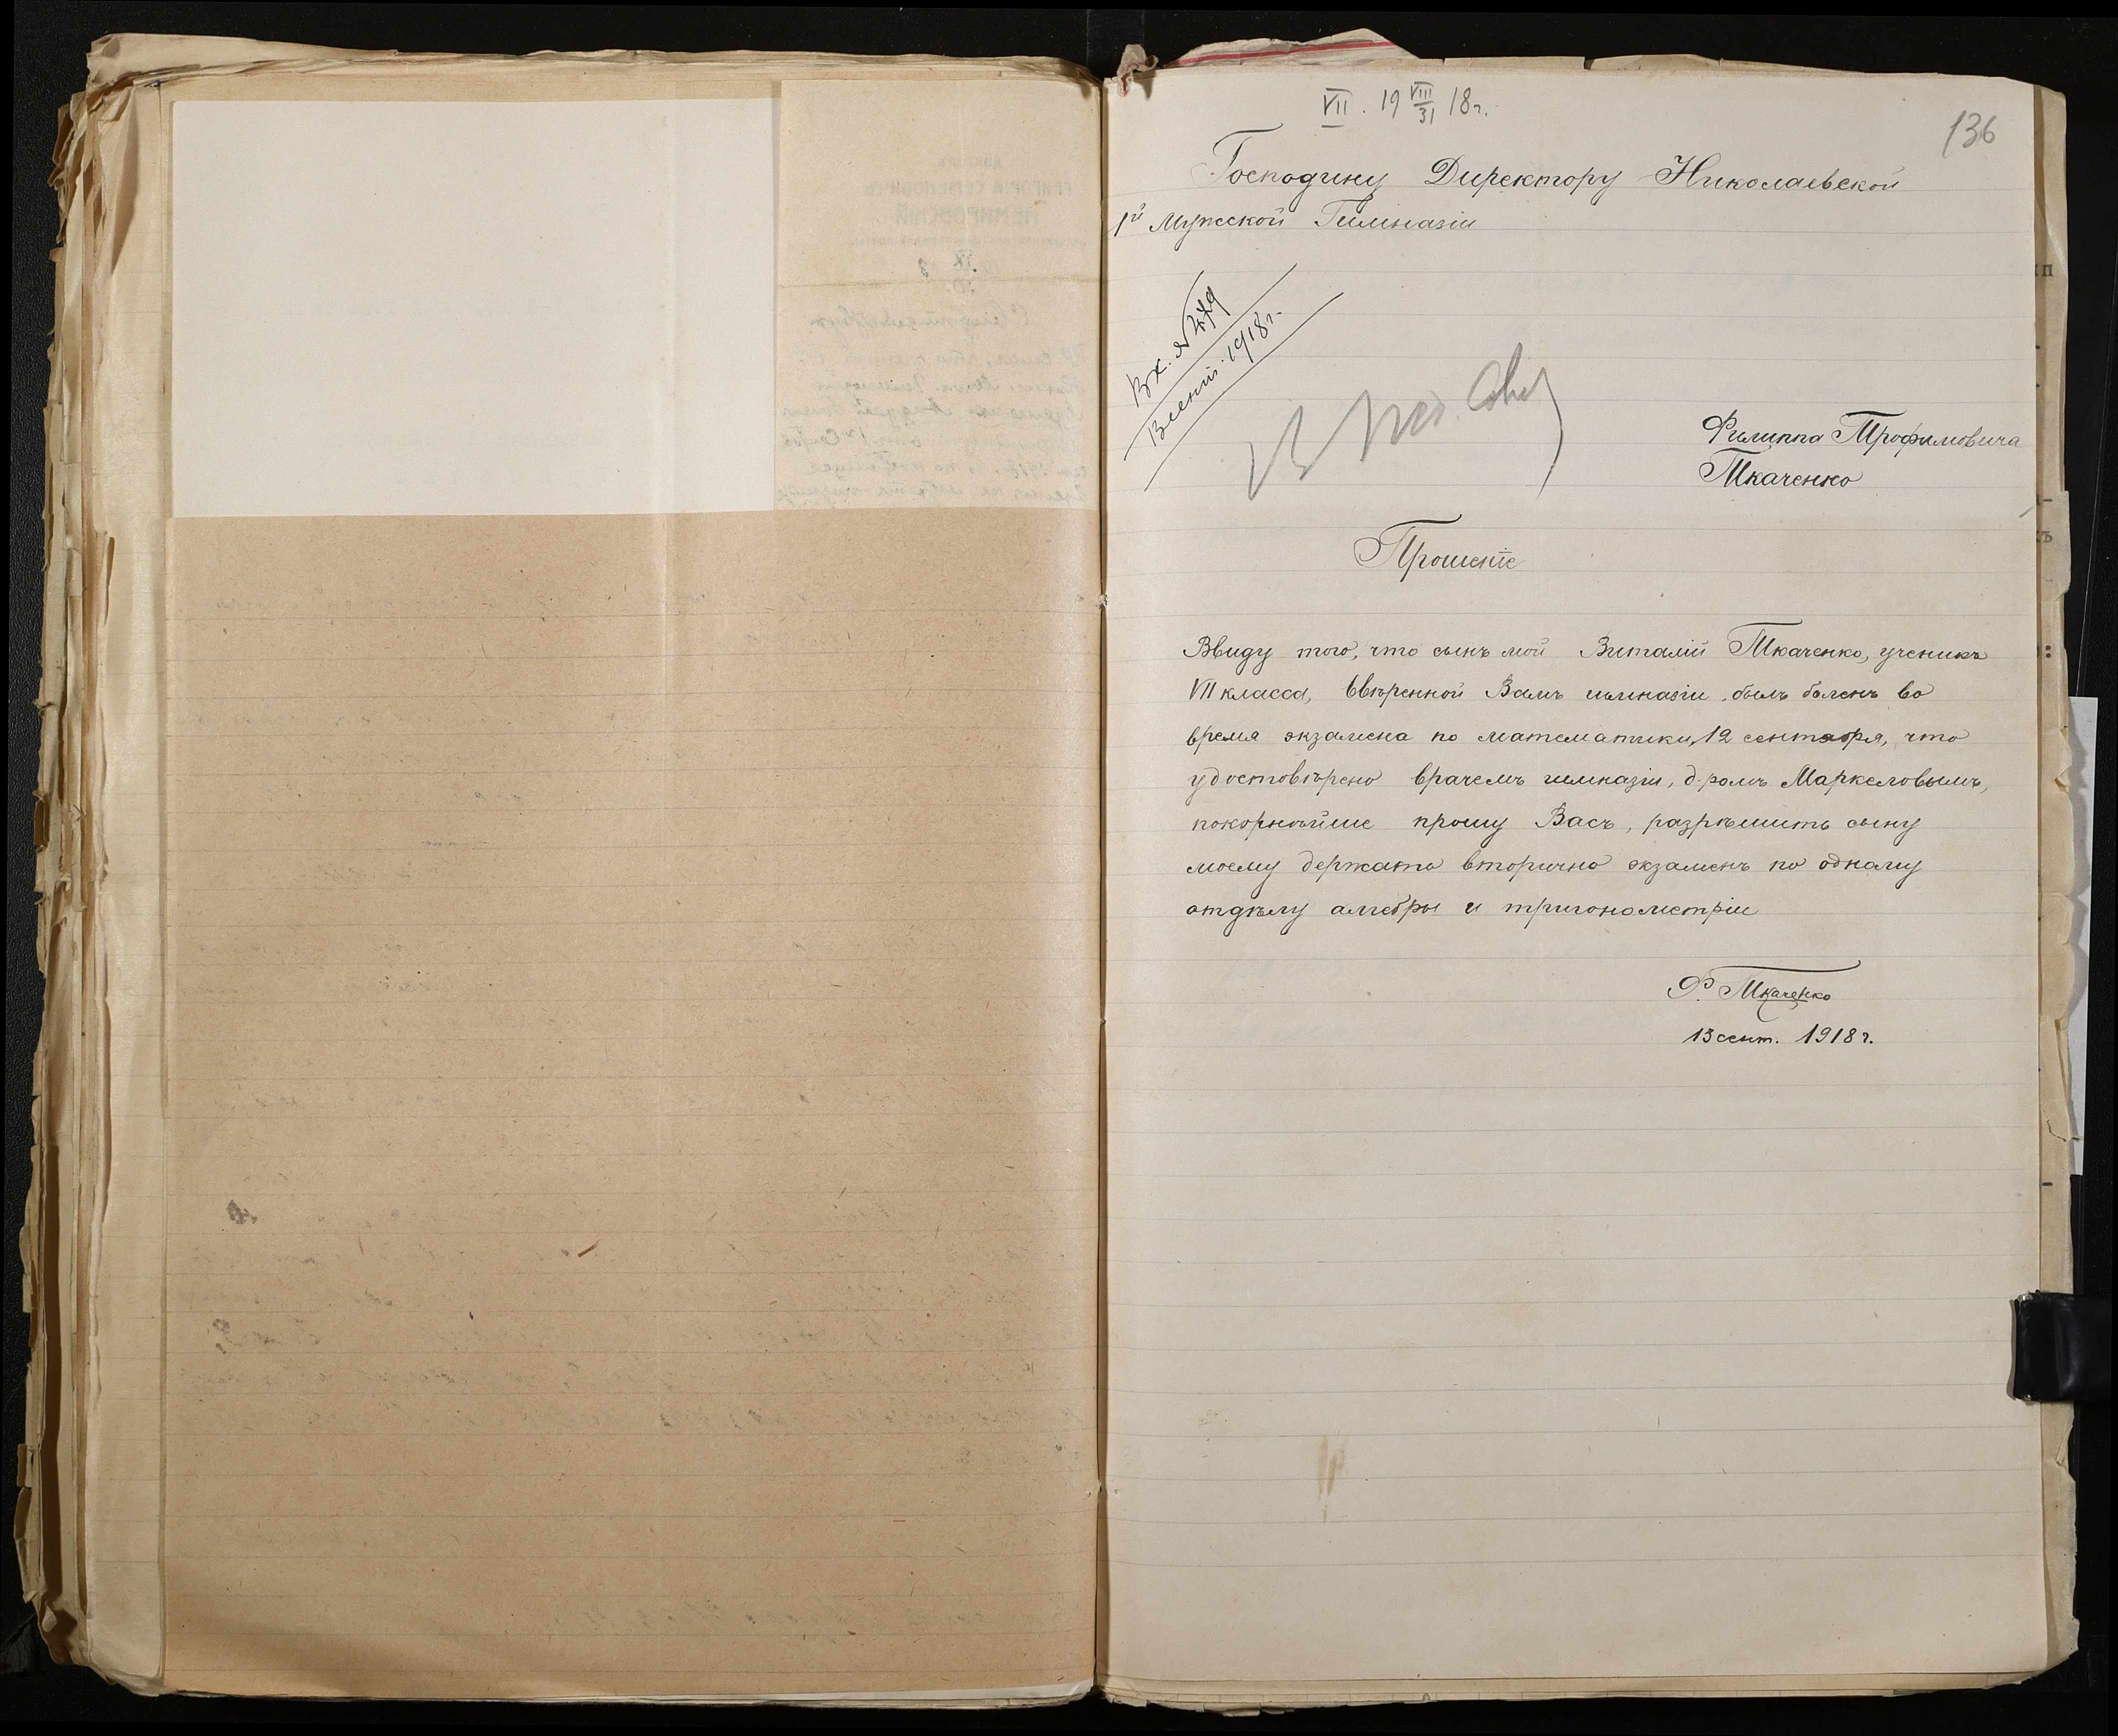 VII. 19 VIII/31 18г.
136
Господину Директору Николаевской
1й Мужской Гимназіи
Вх. №
1918г.
Филиппа Трофимовича
Ткаченко
Прошеніе
Ввиду того, что сынъ мой Виталій Ткаченко, ученикъ
VII класса, ввѣренной Вамъ гимназіи, былъ боленъ во
время экзамена по математики, 12 сентября, что
удостовѣрено врачемъ гимназіи, д-ромъ Маркеловымъ,
покорнѣйше прошу Васъ, разрѣшить сыну
моему держать вторично экзаменъ по одному
отдѣлу алгебры и тригонометріи
Ф. Ткаченко
13 сент. 1918 г.